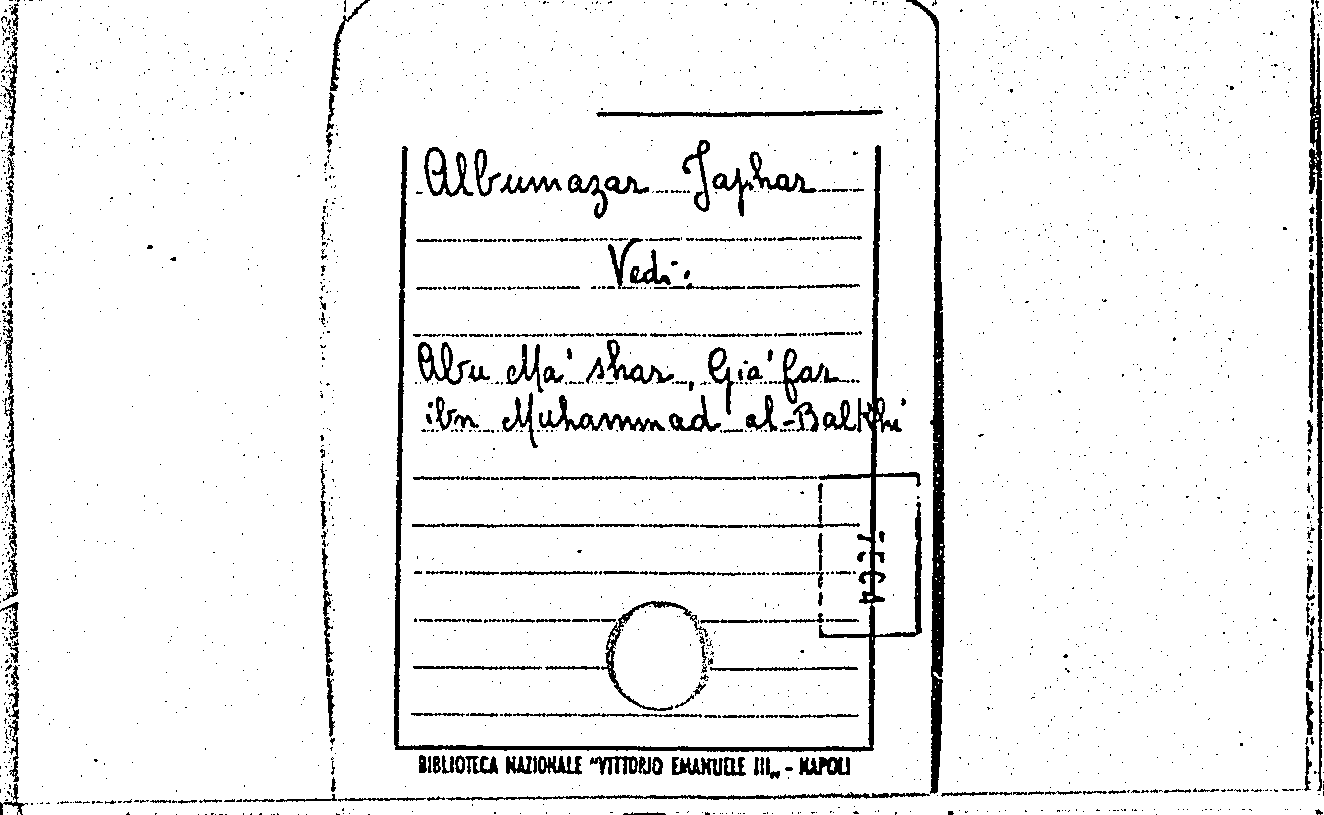 Albumazar Japhar
Vedi:
Abu Ma' shar, Gia'far
ibn Muhammad al-Balkhi
BIBLIOTECA NAZIONALE "VITTORIO EMANUELE III„ - NAPOLI